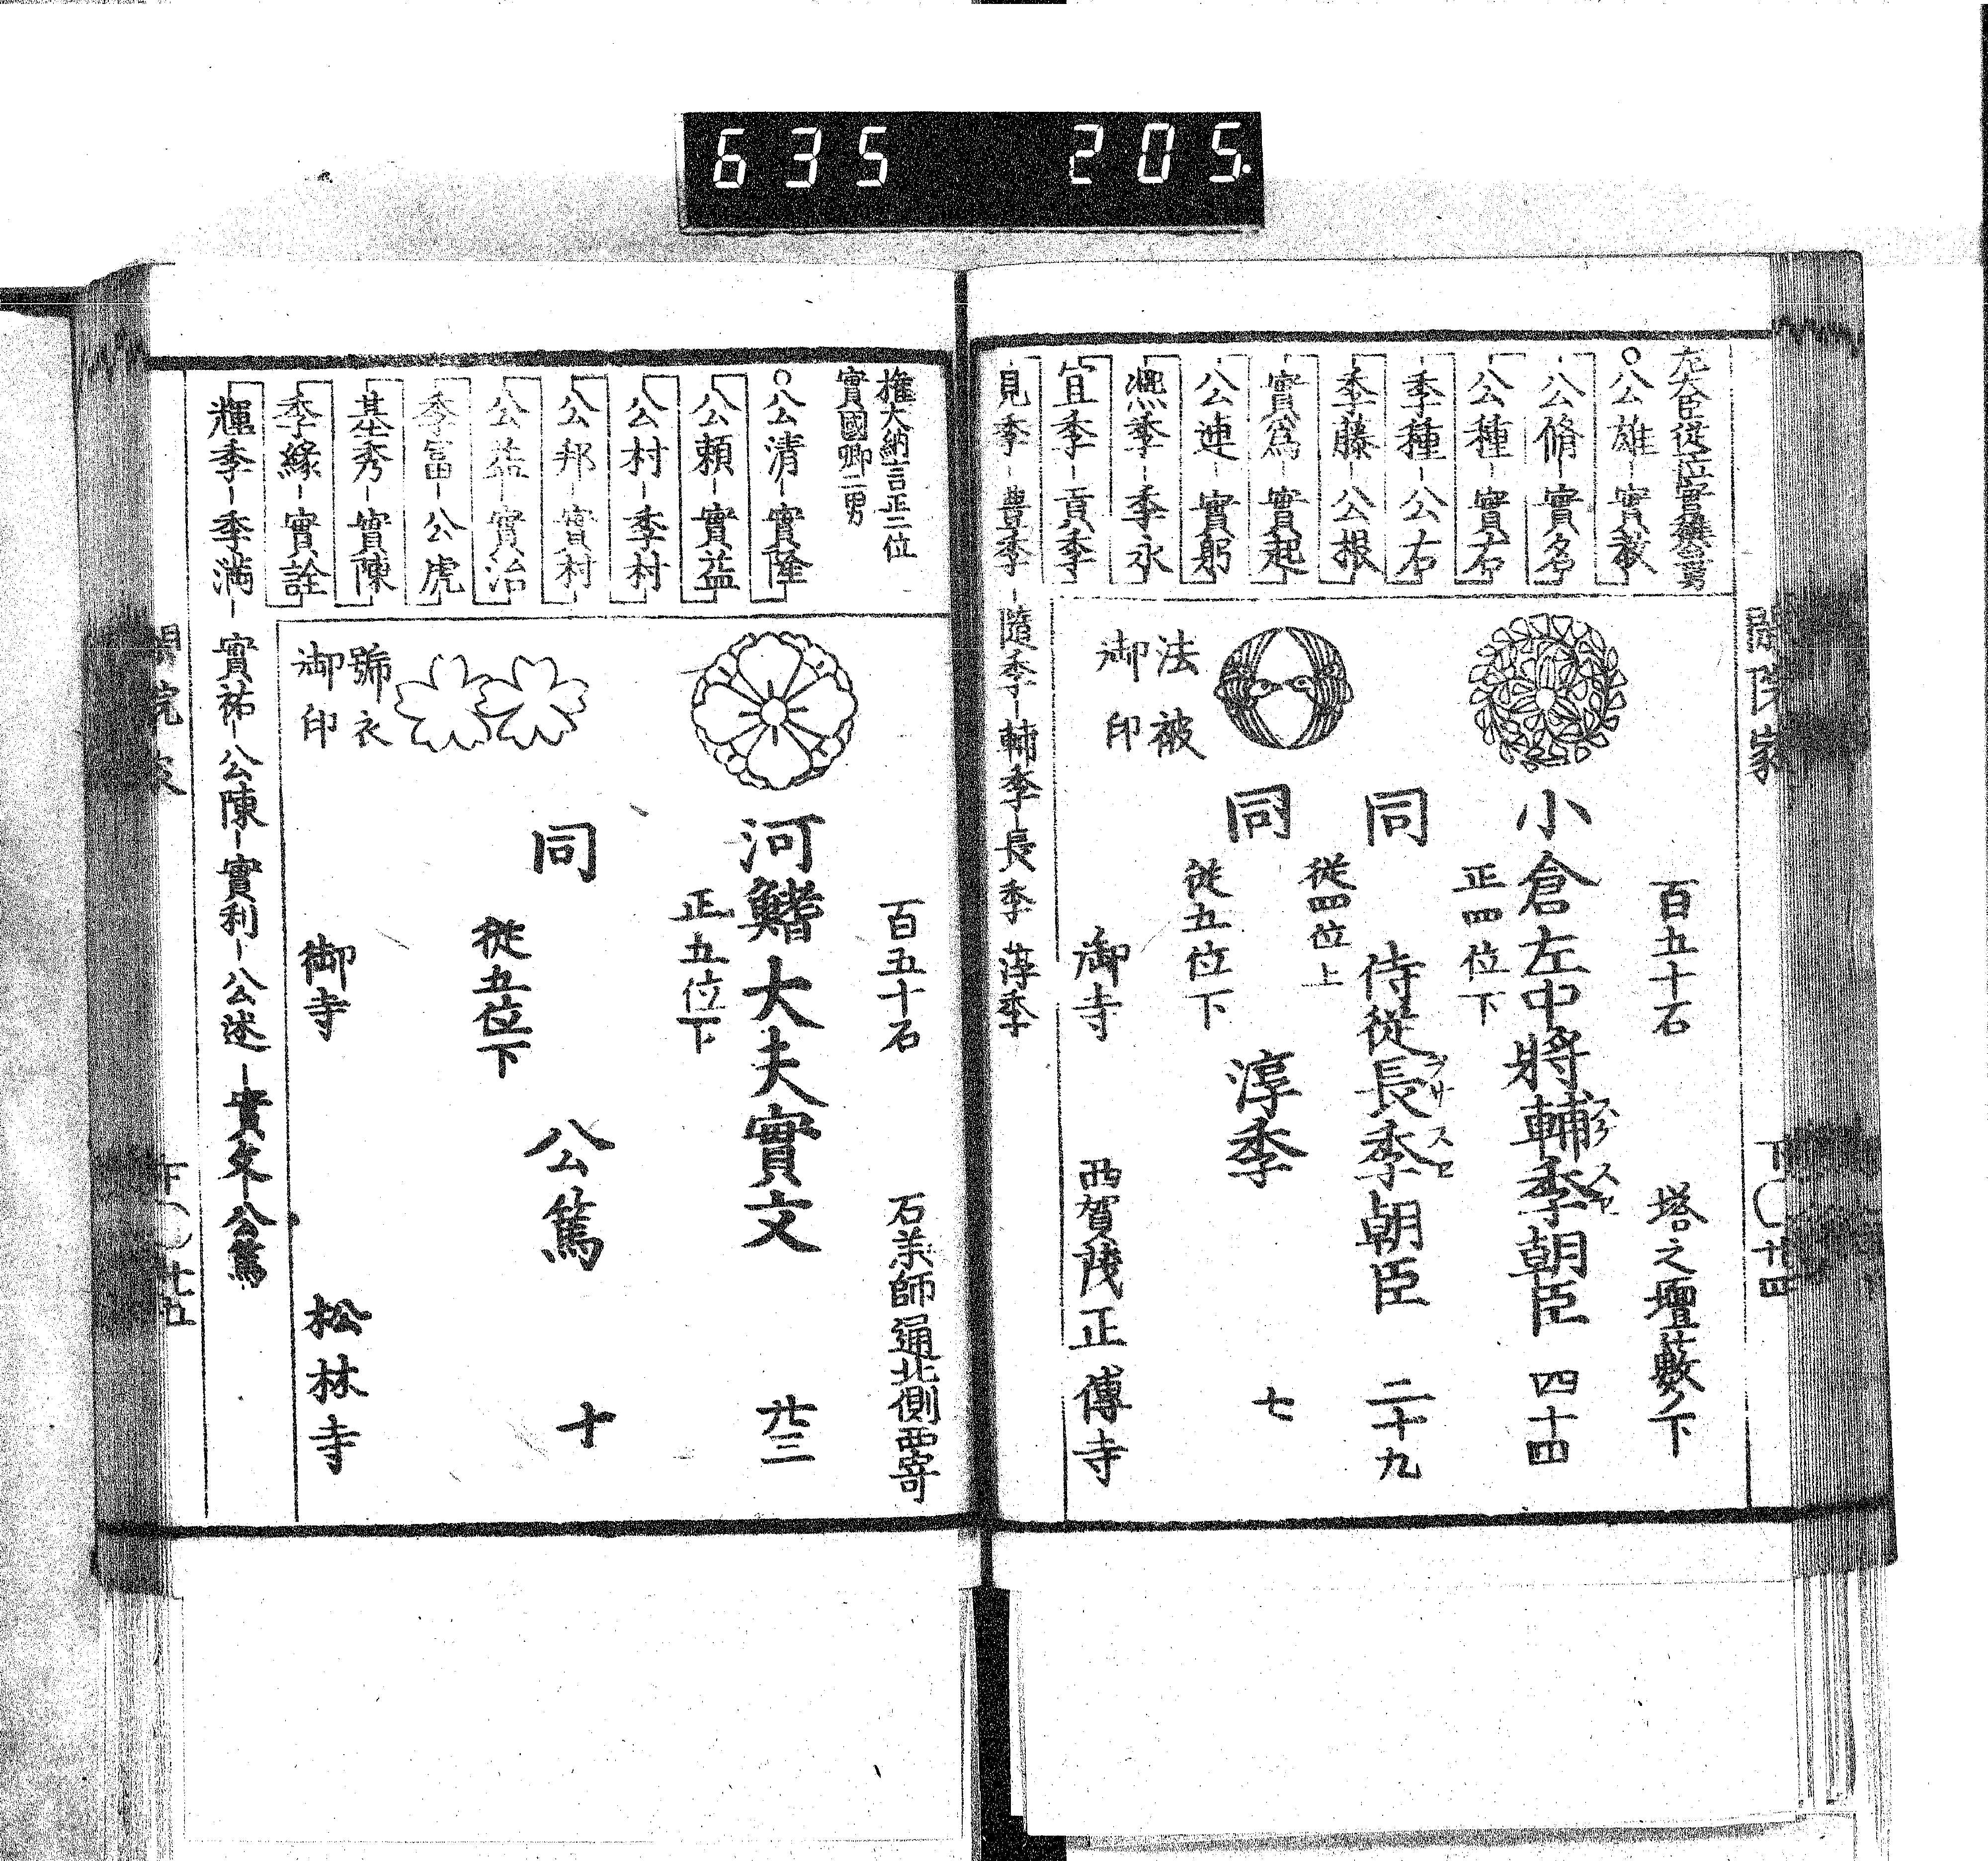 635 205.
閑院家
下〇廿四
左大臣從一位實雄公男
公雄-實教
公脩-實名
公種-實右
季種-公右
季藤-公根
實爲-實起
公連-實躬
凞季-季永
宜季-貢季
見季-豊季-隨季-輔季-長季 淳季
百五十石
塔之壇藪ノ下
小倉左中將輔季朝臣 四十四
スケ スヱ
正四位下
同 侍從長季朝臣 二十九
ヲサ スヱ
從四位上
同 淳季 七
從五位下
法被
御印
御寺 西賀茂正傳寺
權大納言正二位
實國卿二男
公清-實隆
公頼-實益
公村-季村
公邦-實村
公益-實治
季富-公虎
基秀-實陳
季緣-實詮
輝季-季満-實祐-公陳-實利-公述-實文-公篤
百五十石
石薬師通北側西寄
河鰭大夫實文 廿三
正五位下
同 公篤 十
從五位下
號衣
御印
御寺 松林寺
下〇廿五